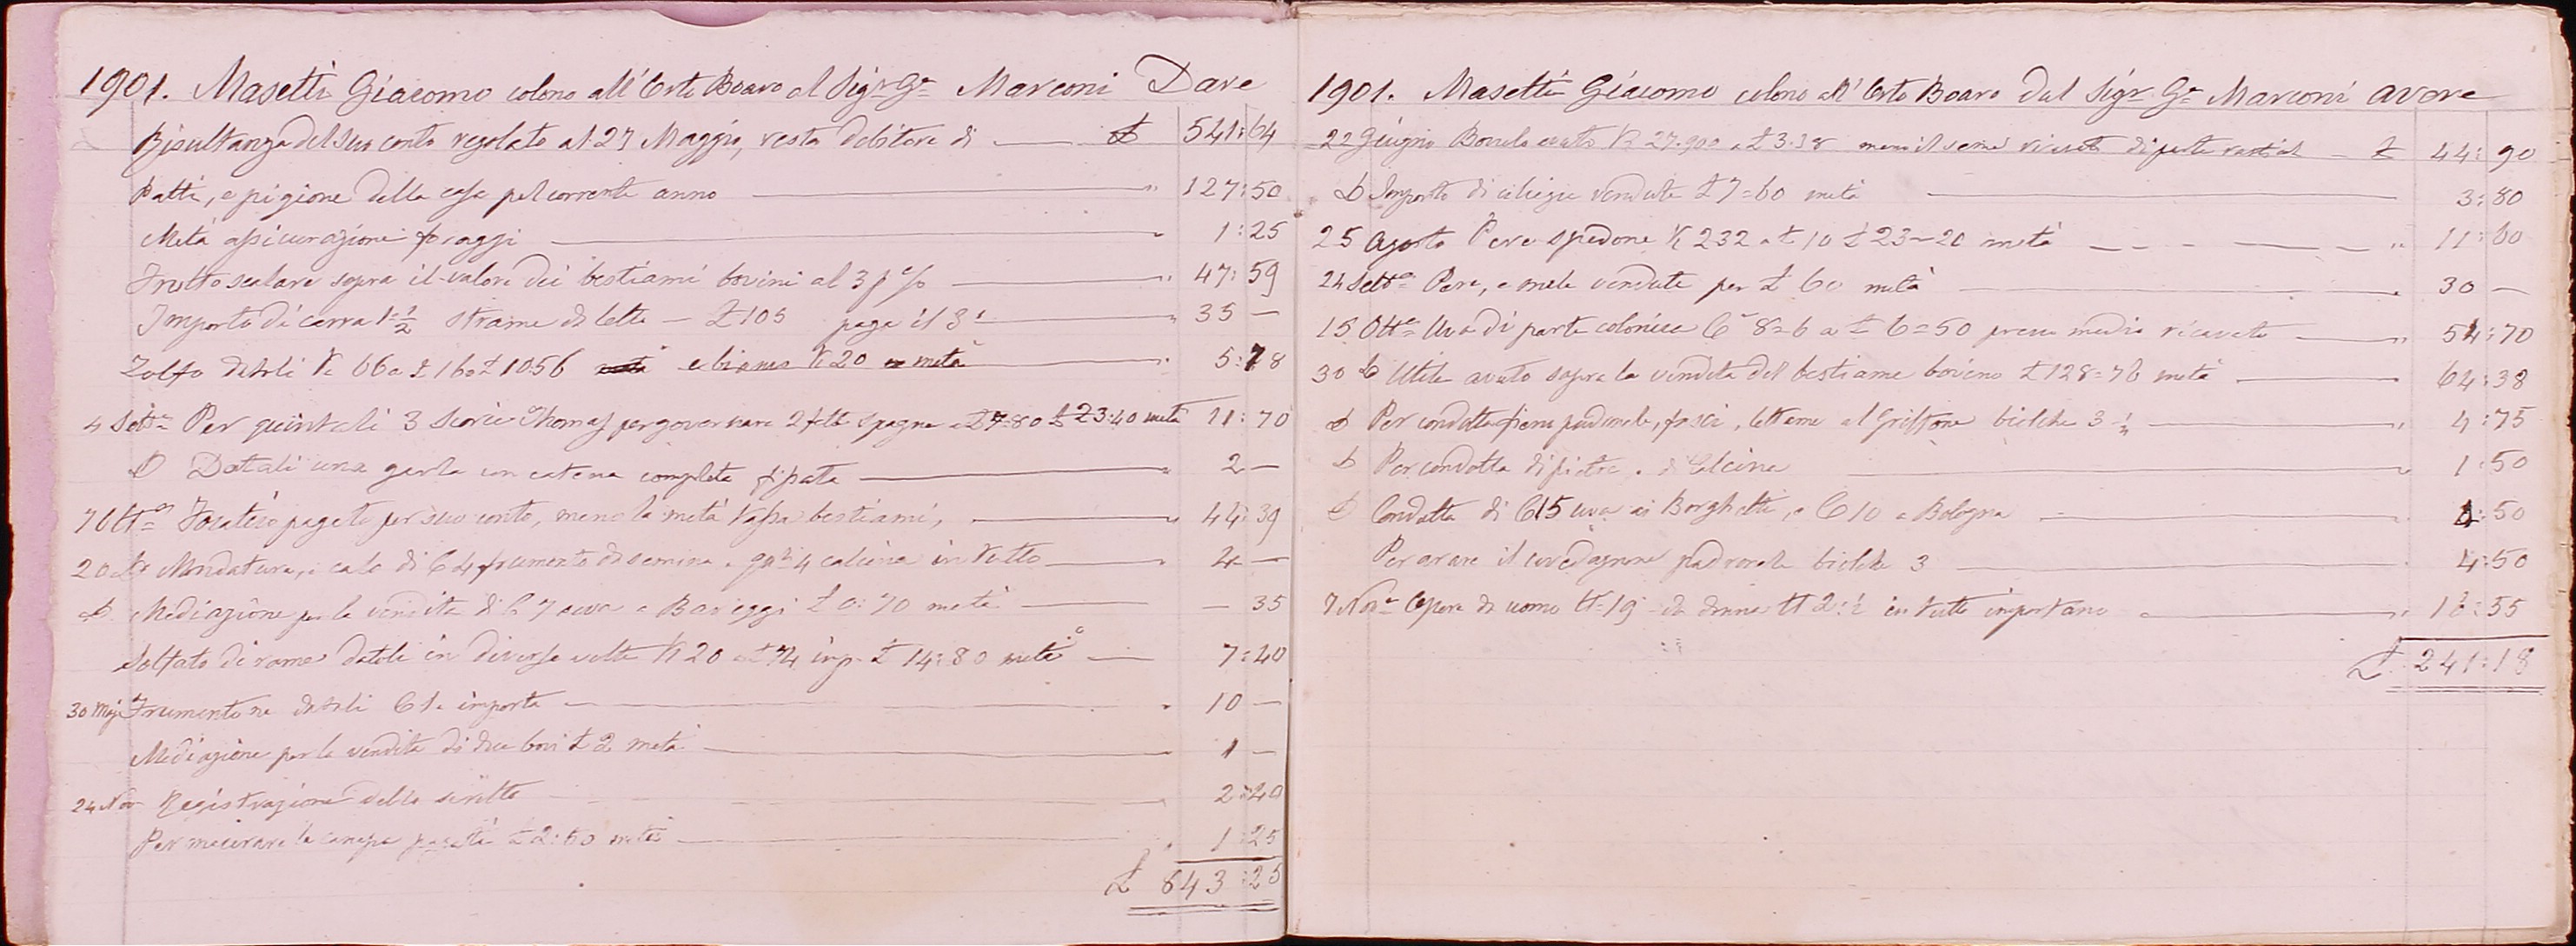 1901. Masetti Giacomo colono all'Orto Boaro al Sigr Ge Marconi Dare
Risultanza del suo conto regolato al 27 Maggio, resta debitore di £ 541:64
Patti, e pigione della casa pel corrente anno " 127:50
Metà assicurazione foraggi " 1:25
Frutto scalare sopra il valore dei bestiami bovini al 3 p % " 47:59
Importo di carra 1 1/2 strame da letto — £ 105 paga il 3° " 35 —
Zolfo datoli K 66 a £ 16 £ 10:56 e K 20 metà " 5:78
4 Sette Per quintali 3 Scorie Thomas per governare 2 spagna a £ 7:80 £ 23:40 metà 11:70
D Datali una con catena completa " 2 —
7 Otte Focatico pagato per suo conto, meno la metà tassa bestiami, " 44:39
20 Do Mondatura, e calo di C 4 frumento da semina e 4 calcina in tutto " 4 —
D. Mediazione per la vendita di C 7 uva a Bareggi £ 0:70 metà — 35
Solfato di rame datoli in diverse volte K 20 a £ 74 imp. £ 14:80 metà 7:40
30 Frumentone datoli C 1. importa " 10 —
Mediazione per la vendita di due bovi £ 2 metà " 1 —
24 Nov Registrazione della scritta " 2:40
Per macerare la canepa pagati £ 2:50 metà " 1:25
£ 843:25
1901. Masetti Giacomo colono all'Orto Boaro dal Sigr Ge Marconi avere
22 Giugno K 27.900 a £ 3.38 meno il seme di parte £ 44:90
D Importo di ciliegie vendute £ 7=60 metà 3:80
25 Agosto Pere spadone K 232 a £ 10 £ 23-20 metà " 11:60
24 Sette Pere, e mele vendute per £ 60 metà " 30 —
15 Otte Uva di parte colonica Ce 8=6 a £ 6=50 prezzo medio ricavato " 54:70
30 D Utile avuto sopra la vendita del bestiame bovino £ 128=76 metà " 64:38
D Per condotta fieno padronale, fasci, lettame al Griffone biolche 3 " 4:75
D Per condotta di pietre, e di Calcina " 1:50
D Condotta di C 15 uva ai Borghetti, e C 10 a Bologna :50
Per arare il cavedagnone padronale biolche 3 4:50
7 Nove Opere da uomo N 19 da donna N 2 in tutto importano " :55
£ 241:18